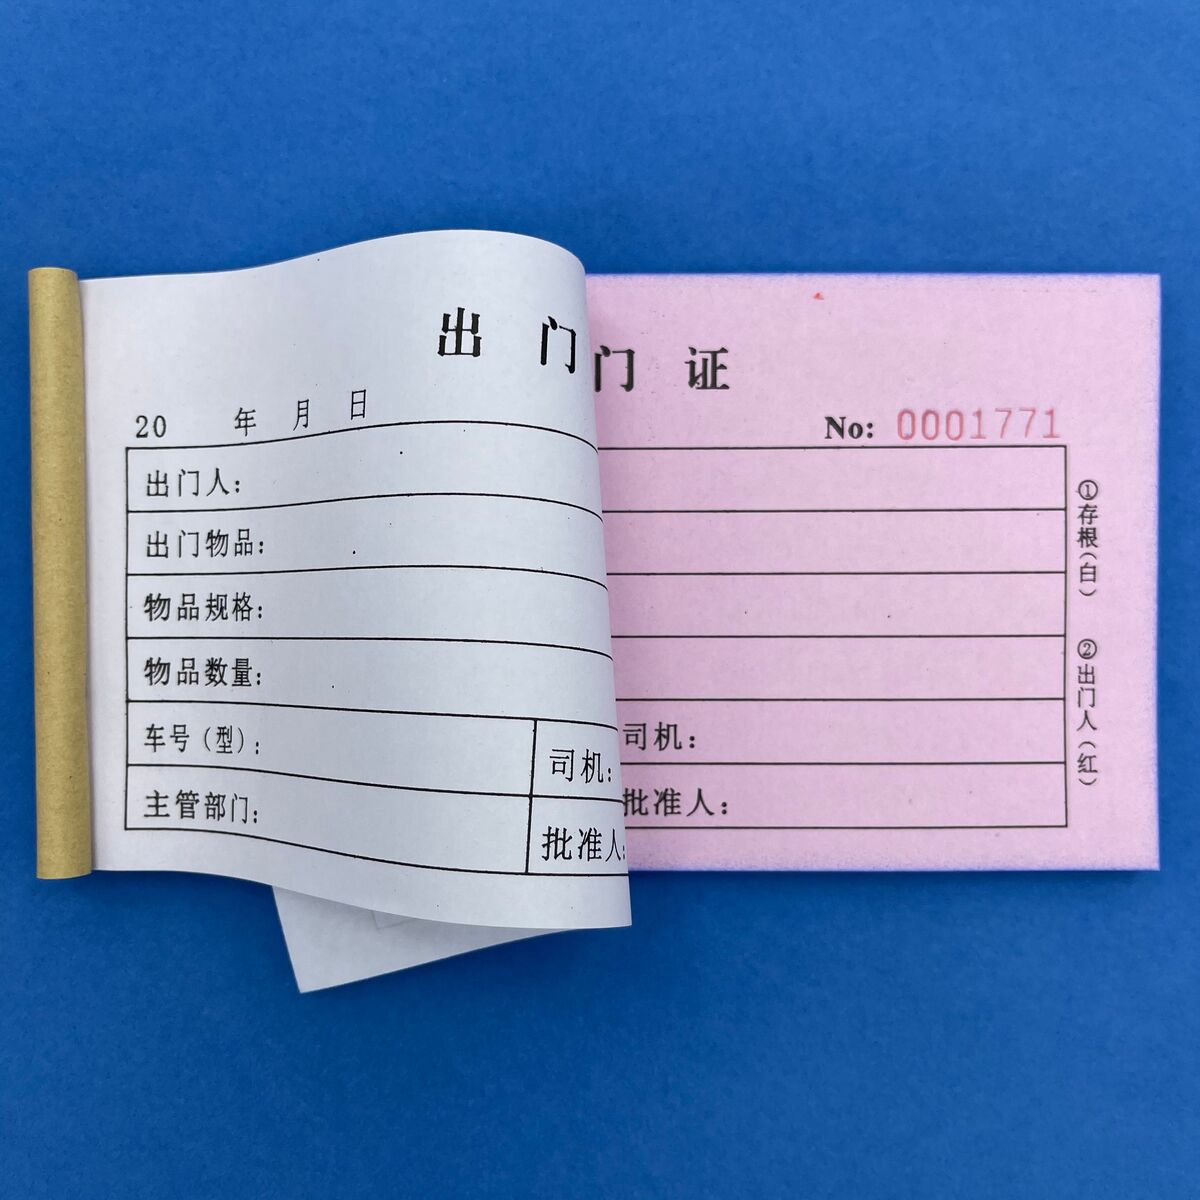 出 门
20 年 月 日
出门人:
出门物品:
物品规格:
物品数量:
车号(型):
司机:
主管部门:
批准人:
门 证
No: 0001771
司机:
批准人:
①存根(白)
②出门人(红)